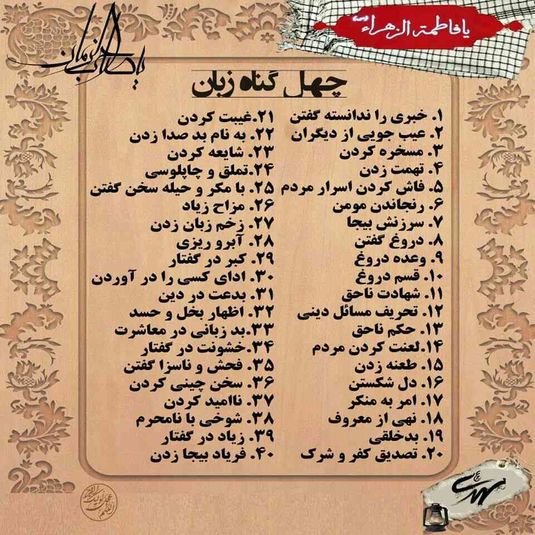 یا فاطمة الزهراء
یا صاحب الزمان
چهل گناه زبان
۱. خبری را ندانسته گفتن
۲. عیب جویی از دیگران
۳. مسخره کردن
۴. تهمت زدن
۵. فاش کردن اسرار مردم
۶. رنجاندن مومن
۷. سرزنش بیجا
۸. دروغ گفتن
۹. وعده دروغ
۱۰. قسم دروغ
۱۱. شهادت ناحق
۱۲. تحریف مسائل دینی
۱۳. حکم ناحق
۱۴. لعنت کردن مردم
۱۵. طعنه زدن
۱۶. دل شکستن
۱۷. امر به منکر
۱۸. نهی از معروف
۱۹. بدخلقی
۲۰. تصدیق کفر و شرک
۲۱.غیبت کردن
۲۲. به نام بد صدا زدن
۲۳. شایعه کردن
۲۴.تملق و چاپلوسی
۲۵. با مکر و حیله سخن گفتن
۲۶. مزاح زیاد
۲۷. زخم زبان زدن
۲۸. آبرو ریزی
۲۹. کبر در گفتار
۳۰. ادای کسی را در آوردن
۳۱. بدعت در دین
۳۲. اظهار بخل و حسد
۳۳.بد زبانی در معاشرت
۳۴.خشونت در گفتار
۳۵. فحش و ناسزا گفتن
۳۶. سخن چینی کردن
۳۷. ناامید کردن
۳۸. شوخی با نامحرم
۳۹. زیاد در گفتار
۴۰. فریاد بیجا زدن